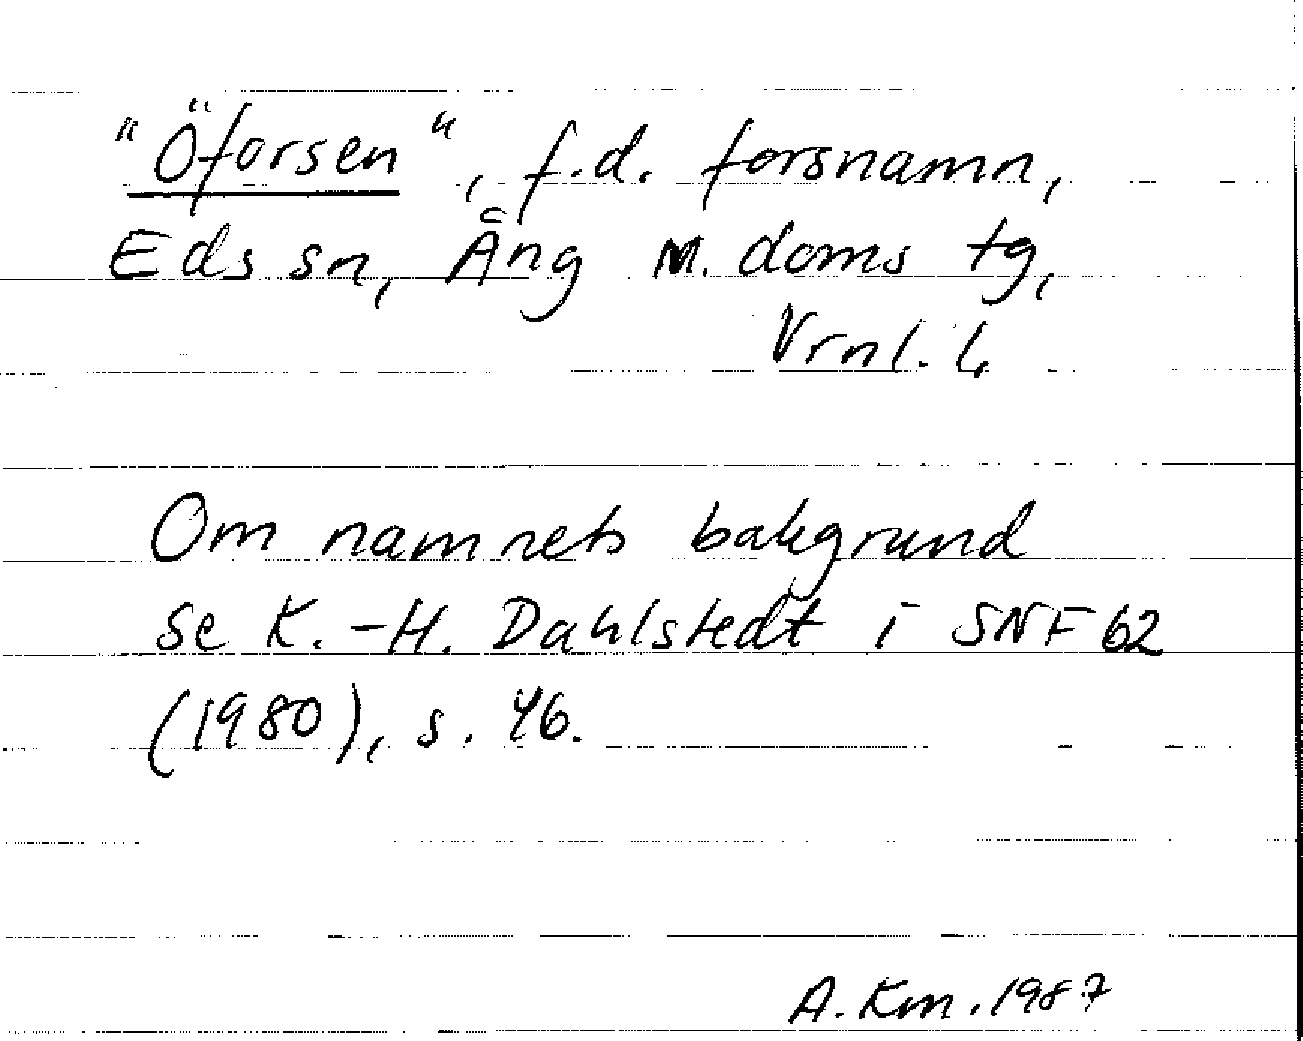 "Öforsen", f.d. forsnamn,
Eds sn, Äng M. doms tg,
Vrnl. l.
Om namnets bakgrund
se K.-H. Dahlstedt i SNF 62
(1980), s. 46.
A. Km. 1987